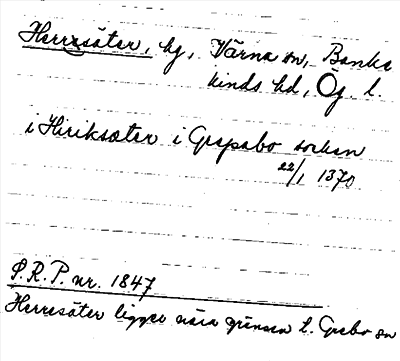 Herresäter, hg, Värna sn, Banke
kinds hd, Ög. l.
i Hiriksæter i Grepsabo sockan
22/1 1370
S.R.P. nr. 1847
Herresäter ligger nära gränsen t. Grebo sn